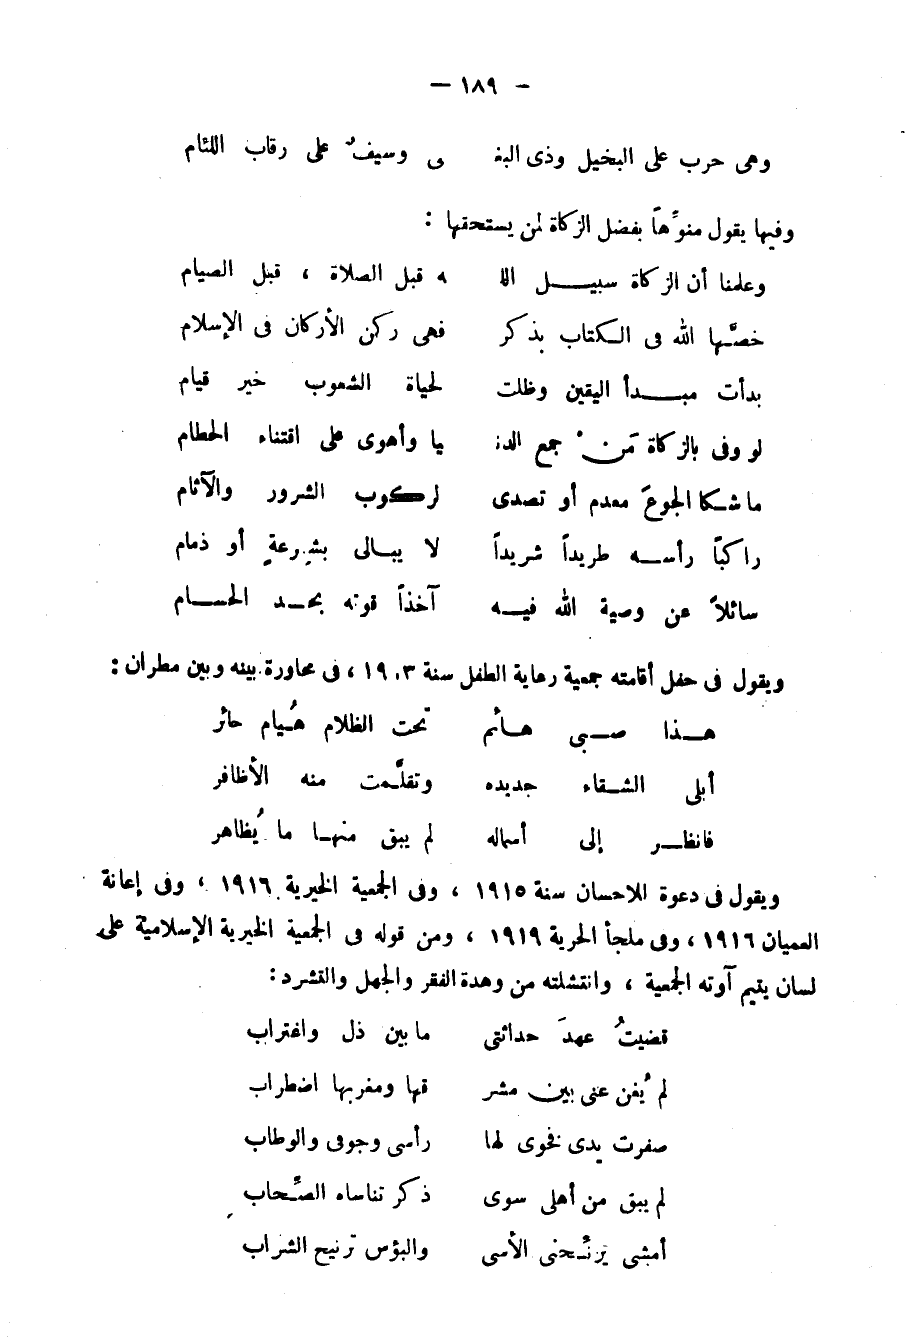 — ١٨٩ —
وهى حرب على البخيل وذى البغـ ـى وسيفٌ على رقاب اللئام
وفيها يقول منوِّهاً بفضل الزكاة لمن يستحقها :
وعلمنا أن الزكاة سبيــل اللـ ـه قبل الصلاة ، قبل الصيام
خصَّها الله فى الكتاب بذكر فهى ركن الأركان فى الإسلام
بدأت مبــدأ اليقين وظلت لحياة الشعوب خير قيام
لو وفى بالزكاة مَنْ جمع الدنـ ـيا وأهوى على اقتناء الحطام
ما شكا الجوعَ معدم أو تصدى لركوب الشرور والآثام
راكباً رأســه طريداً شريداً لا يبالى بشرعةٍ أو ذمام
سائلاً عن وصية الله فيــه آخذاً قوته بحــد الحسام
ويقول فى حفل أقامته جمعية رعاية الطفل سنة ١٩٠٣ ، فى محاورة بينه وبين مطران :
هــذا صــبى هــائم تحت الظلام هُيام حائر
أبلى الشــقاء جديده وتقلَّمت منه الأظافر
فانظــر إلى أسماله لم يبق منهـا ما يُظاهر
ويقول فى دعوة للاحسان سنة ١٩١٥ ، وفى الجمعية الخيرية ١٩١٦ ، وفى إعانة
العميان ١٩١٦ ، وفى ملجأ الحرية ١٩١٩ ، ومن قوله فى الجمعية الخيرية الإسلامية على
لسان يتيم آوته الجمعية ، وانتشلته من وهدة الفقر والجهل والتشرد :
قضيتُ عهدَ حداثتى ما بين ذل واغتراب
لم يُغن عنى بين مشر قها ومغربها اضطراب
صفرت يدى فخوى لها رأسى وجوفى والوطاب
لم يبق من أهلى سوى ذكر تناساه الصِّحاب
أمشى يرنِّحنى الأسى والبؤس ترنيح الشراب